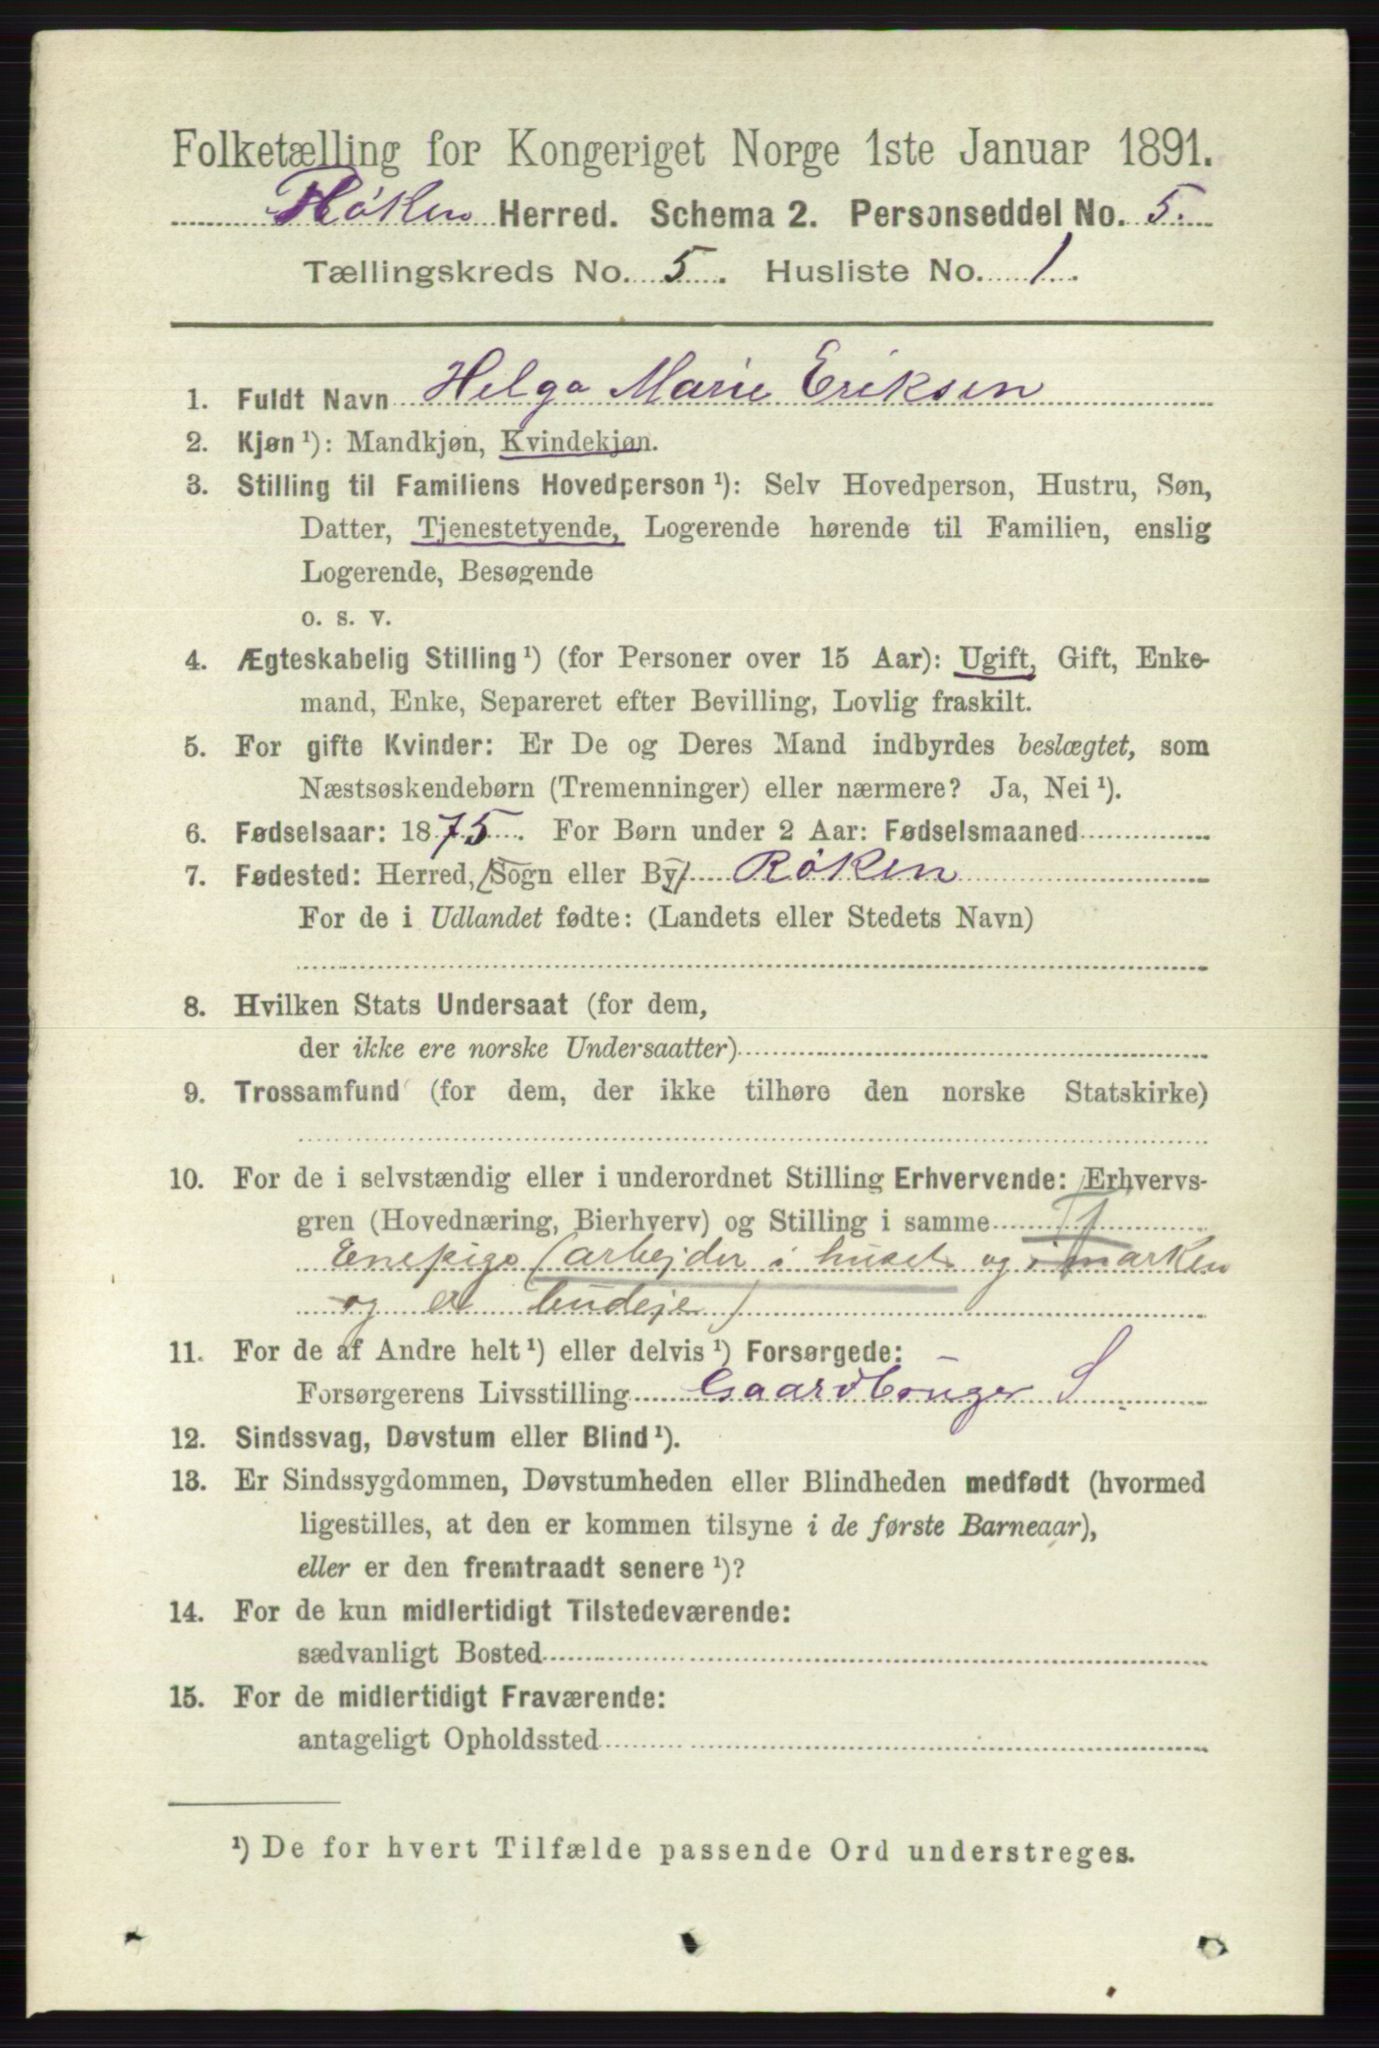 Folketælling for Kongeriget Norge 1ste Januar 1891.
Røken Herred. Schema 2. Personseddel No. 5.
Tællingskreds No. 5. Husliste No. 1.
1. Fuldt Navn Helga Marie Eriksen
2. Kjøn ¹): Mandkjøn, Kvindekjøn.
3. Stilling til Familiens Hovedperson ¹): Selv Hovedperson, Hustru, Søn,
Datter, Tjenestetyende, Logerende hørende til Familien, enslig
Logerende, Besøgende
o. s. v.
4. Ægteskabelig Stilling ¹) (for Personer over 15 Aar): Ugift, Gift, Enke-
mand, Enke, Separeret efter Bevilling, Lovlig fraskilt.
5. For gifte Kvinder: Er De og Deres Mand indbyrdes beslægtet, som
Næstsøskendebørn (Tremenninger) eller nærmere? Ja, Nei ¹).
6. Fødselsaar: 1875. For Børn under 2 Aar: Fødselsmaaned
7. Fødested: Herred, (Sogn eller By) Røken
For de i Udlandet fødte: (Landets eller Stedets Navn)
8. Hvilken Stats Undersaat (for dem,
der ikke ere norske Undersaatter)
9. Trossamfund (for dem, der ikke tilhøre den norske Statskirke)
10. For de i selvstændig eller i underordnet Stilling Erhvervende: Erhvervs-
gren (Hovednæring, Bierhverv) og Stilling i samme
Enepige (arbejder i huset og i marken
og er budeje)
11. For de af Andre helt ¹) eller delvis ¹) Forsørgede:
Forsørgerens Livsstilling Gaardbruger S
12. Sindssvag, Døvstum eller Blind ¹).
13. Er Sindssygdommen, Døvstumheden eller Blindheden medfødt (hvormed
ligestilles, at den er kommen tilsyne i de første Barneaar),
eller er den fremtraadt senere ¹)?
14. For de kun midlertidigt Tilstedeværende:
sædvanligt Bosted
15. For de midlertidigt Fraværende:
antageligt Opholdssted
¹) De for hvert Tilfælde passende Ord understreges.